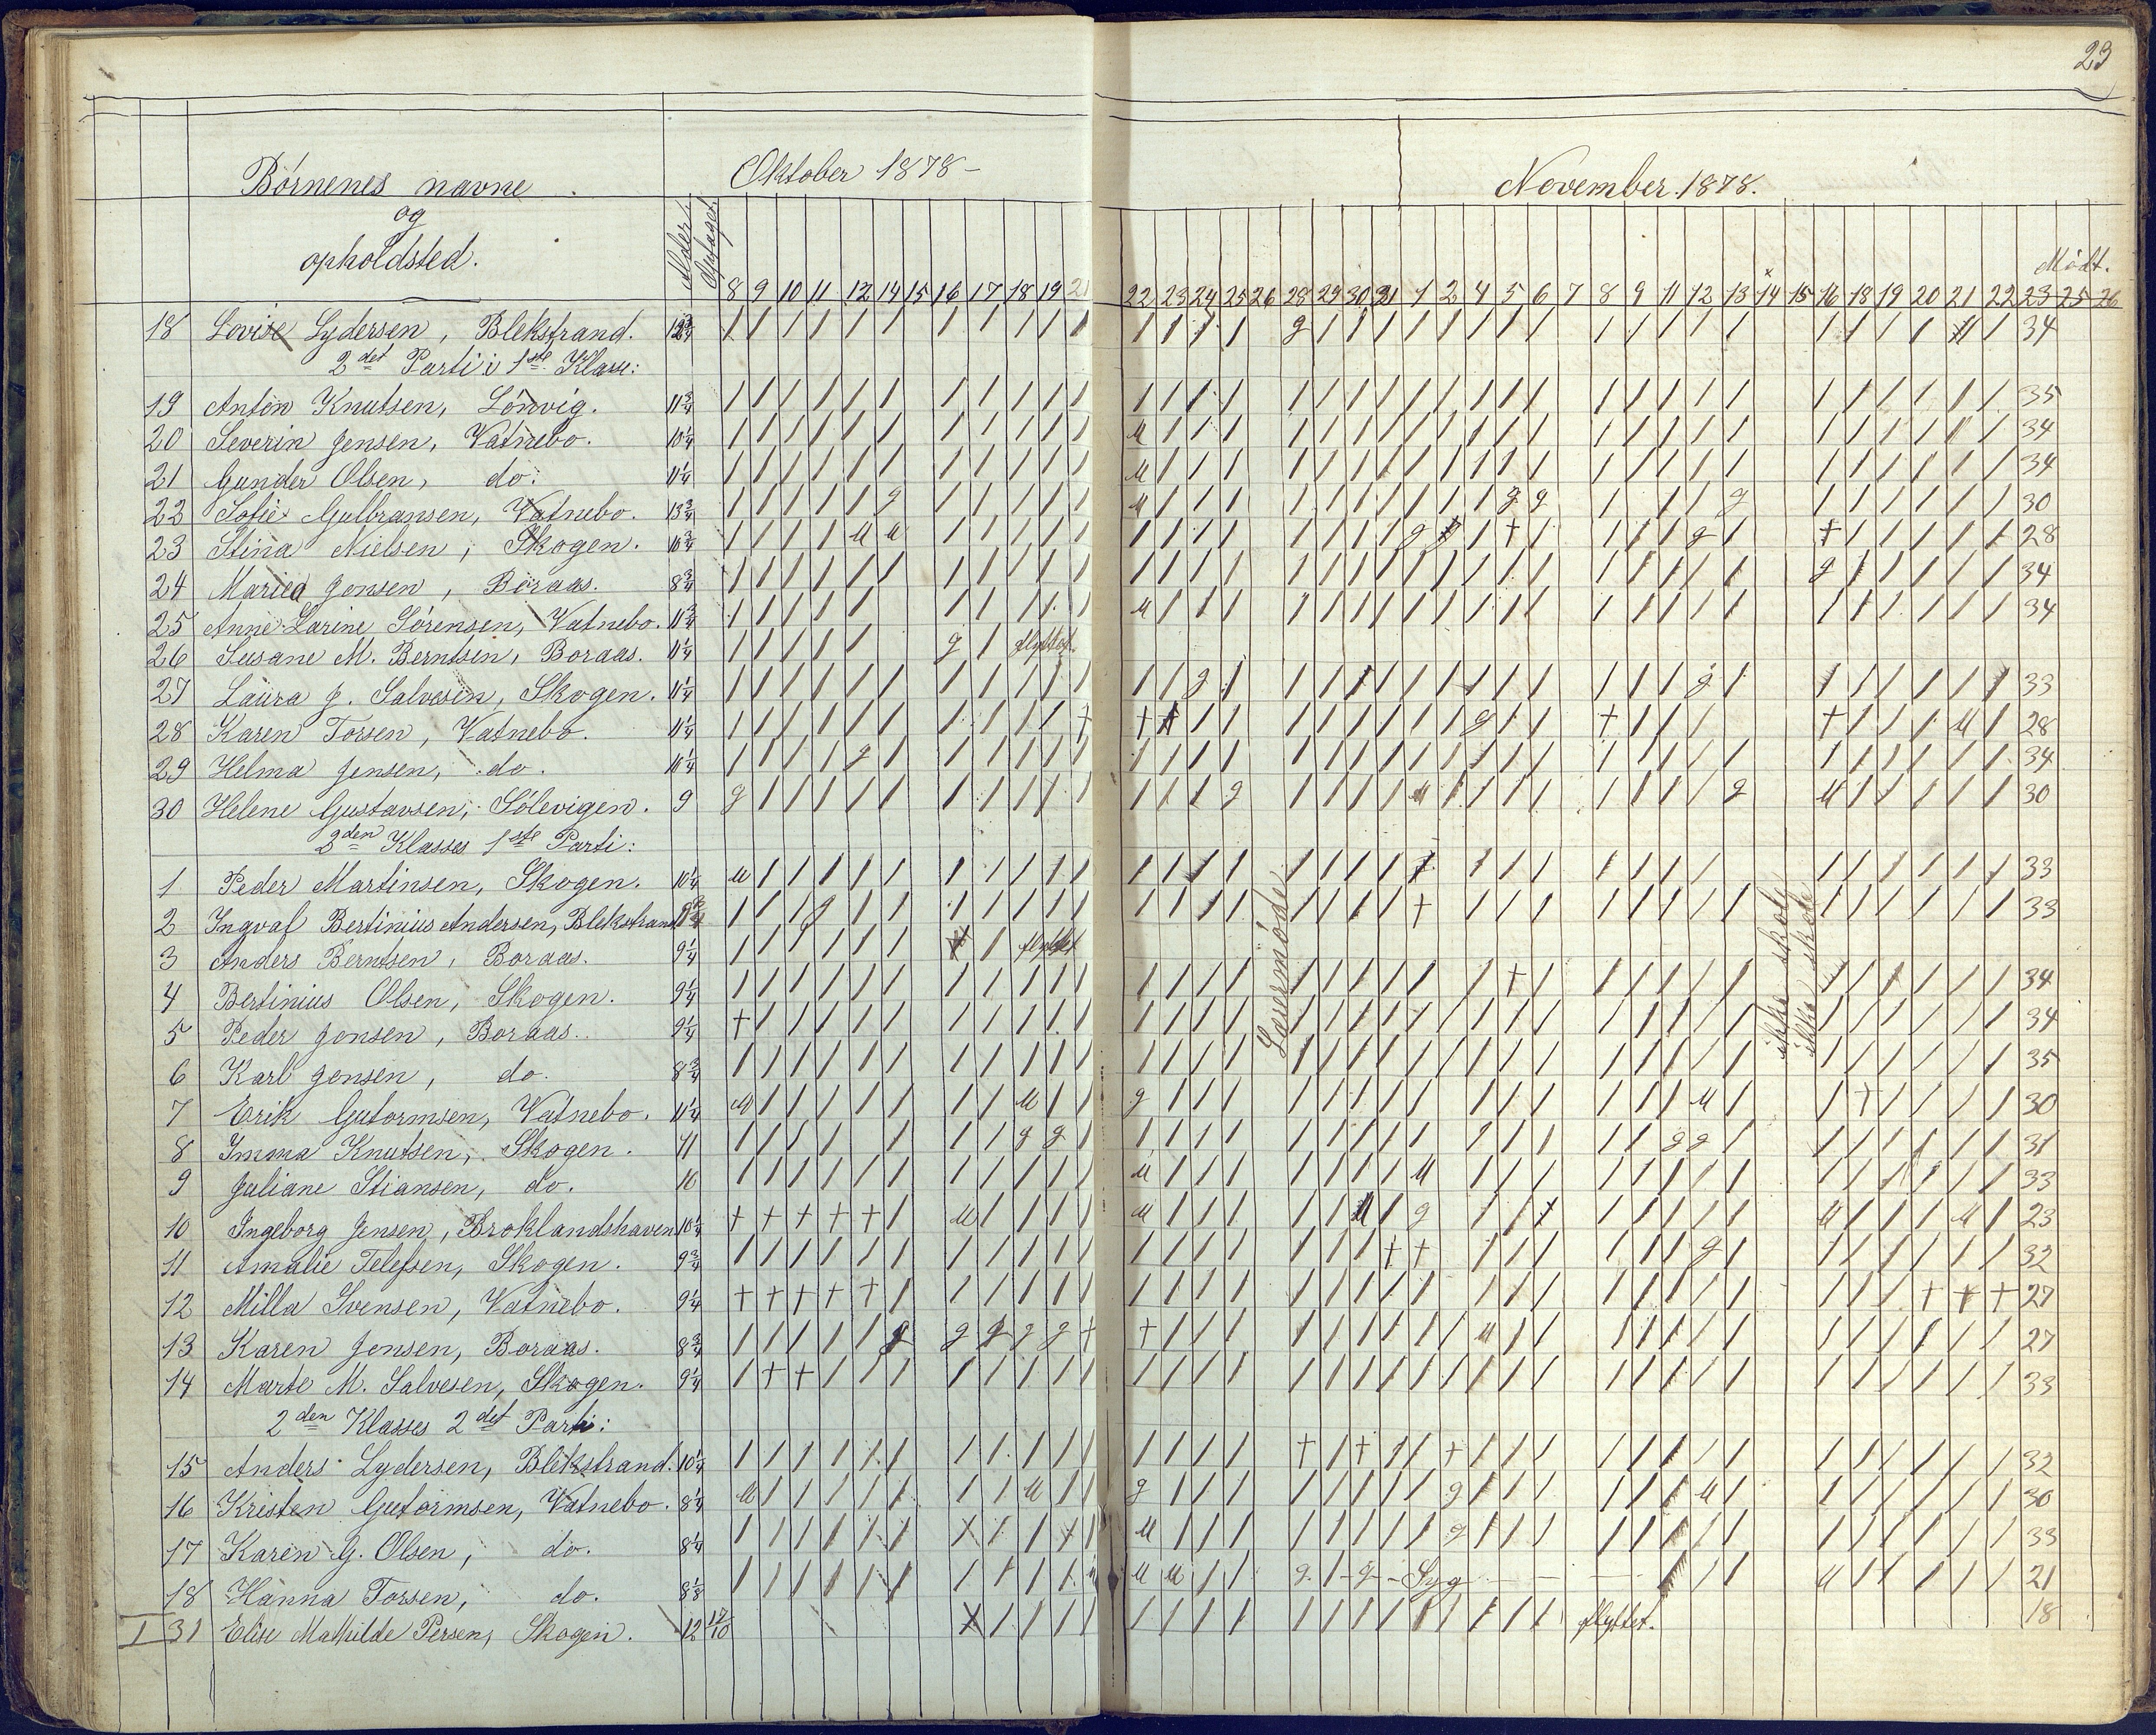 23
Börnenes navne
og
opholdsted.
Alder.
Optaget.
Oktober 1878 -
November 1878.
8 9 10 11 12 14 15 16 17 18 19 21 22 23 24 25 26 28 29 30 31 1 2 4 5 6 7 8 9 11 12 13 14 15 16 18 19 20 21 22 23 25 26
Mödt.
18 Lovise Lydersen, Blekstrand. 12¾ 34
2det Parti i 1ste Klasse:
19 Anton Knutsen, Lönvig. 11¾ 35
20 Severin Jensen, Vatnebo. 10¼ 34
21 Gunder Olsen, do. 11¼ 34
22 Sofie Gulbransen, Vatnebo. 13¾ 30
23 Stina Nielsen, Skogen. 10¾ 28
24 Maria Jensen, Boraas. 8¾ 34
25 Anne Larine Sörensen, Vatnebo. 11¾ 34
26 Susane M. Berntsen, Boraas. 11¼ flyttet.
27 Laura J. Salvesen, Skogen. 11¼ 33
28 Karen Torsen, Vatnebo. 11¼ 28
29 Helma Jensen, do. 10¼ 34
30 Helene Gustavsen, Sölevigen. 9 30
2den Klasses 1ste Parti:
1 Peder Martinsen, Skogen. 10¼ 33
2 Ingvaf Bertinius Andersen, Blekstrand 33
3 Anders Berntsen, Boraas. 9¼ flyttet
4 Bertinius Olsen, Skogen. 9¼ 34
5 Peder Jensen, Boraas. 9¼ 34
6 Karl Jensen, do. 8¾ 35
7 Erik Gutormsen, Vatnebo. 11¼ 30
8 Imma Knutsen, Skogen. 11 31
9 Juliane Stiansen, do. 10 33
10 Ingeborg Jensen, Broklandshaven 10¼ 23
11 Amalie Telefsen, Skogen. 9¾ 32
12 Milla Svensen, Vatnebo. 9¼ 27
13 Karen Jensen, Boraas. 8¾ 27
14 Marte M. Salvesen, Skogen. 9¼ 33
Læremöde
ikke skole
ikke skole
2den Klasses 2det Parti:
15 Anders Lydersen, Blekstrand. 10¼ 32
16 Kristen Gutormsen, Vatnebo. 8¼ 30
17 Karen G. Olsen, do. 8¼ 33
18 Hanna Torsen, do. 8⅛ Syg 21
I 31 Elise Mathilde Persen, Skogen. 12 17/10 flyttet. 18